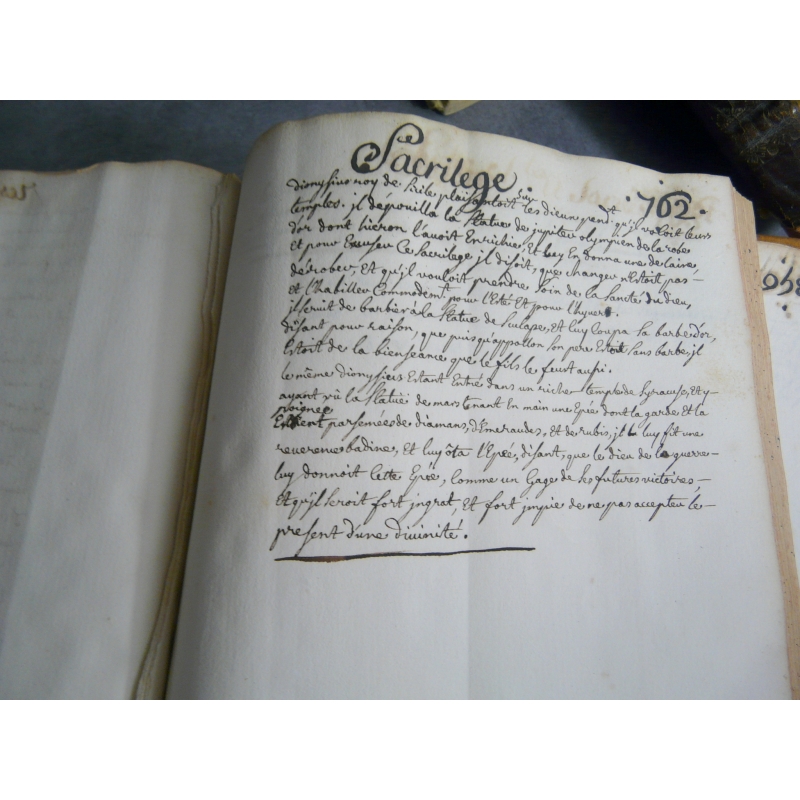 Sacrilege
.762.
dionysius roy de sicile plaisantoit sur les dieux pendt qu'il voloit leurs
temples. jl dépouilla la statue de jupiter olympien de la robe
d'or dont hieron l'avoit Enrichie, Et luy En donna une de laine,
et pour Excuser Ce Sacrilege jl disoit, que changer n'Estoit pas –
dérober, Et qu'jl vouloit prendre soin de la santé du dieu,
et l'habiller Commodemt. pour l'Esté Et pour l'hyver.
jl servit de barbier à la statue de Sculape, Et luy coupa sa barbe d'or,
disant pour raison, que puis qu'appollon son pere Estoit sans barbe, jl
Estoit de la bienseance que le fils le feust aussi.
le même dionysius Estant Entré dans un riche temple de Syracuse, Et y –
ayant vû la statuë de mars tenant En main une Epée dont la garde Et la
poignée
Estoient parsemées de diamans, d'Emeraudes, Et de rubis, jl luy fit une
reverence badine, Et luy ôta l'Epée, disant, que le dieu de la guerre –
luy donnoit Cette Epée, Comme un Gage de ses futures victoires –
Et qu'jl seroit fort jngrat, Et fort jmpie de ne pas accepter le –
present d'une divinité.